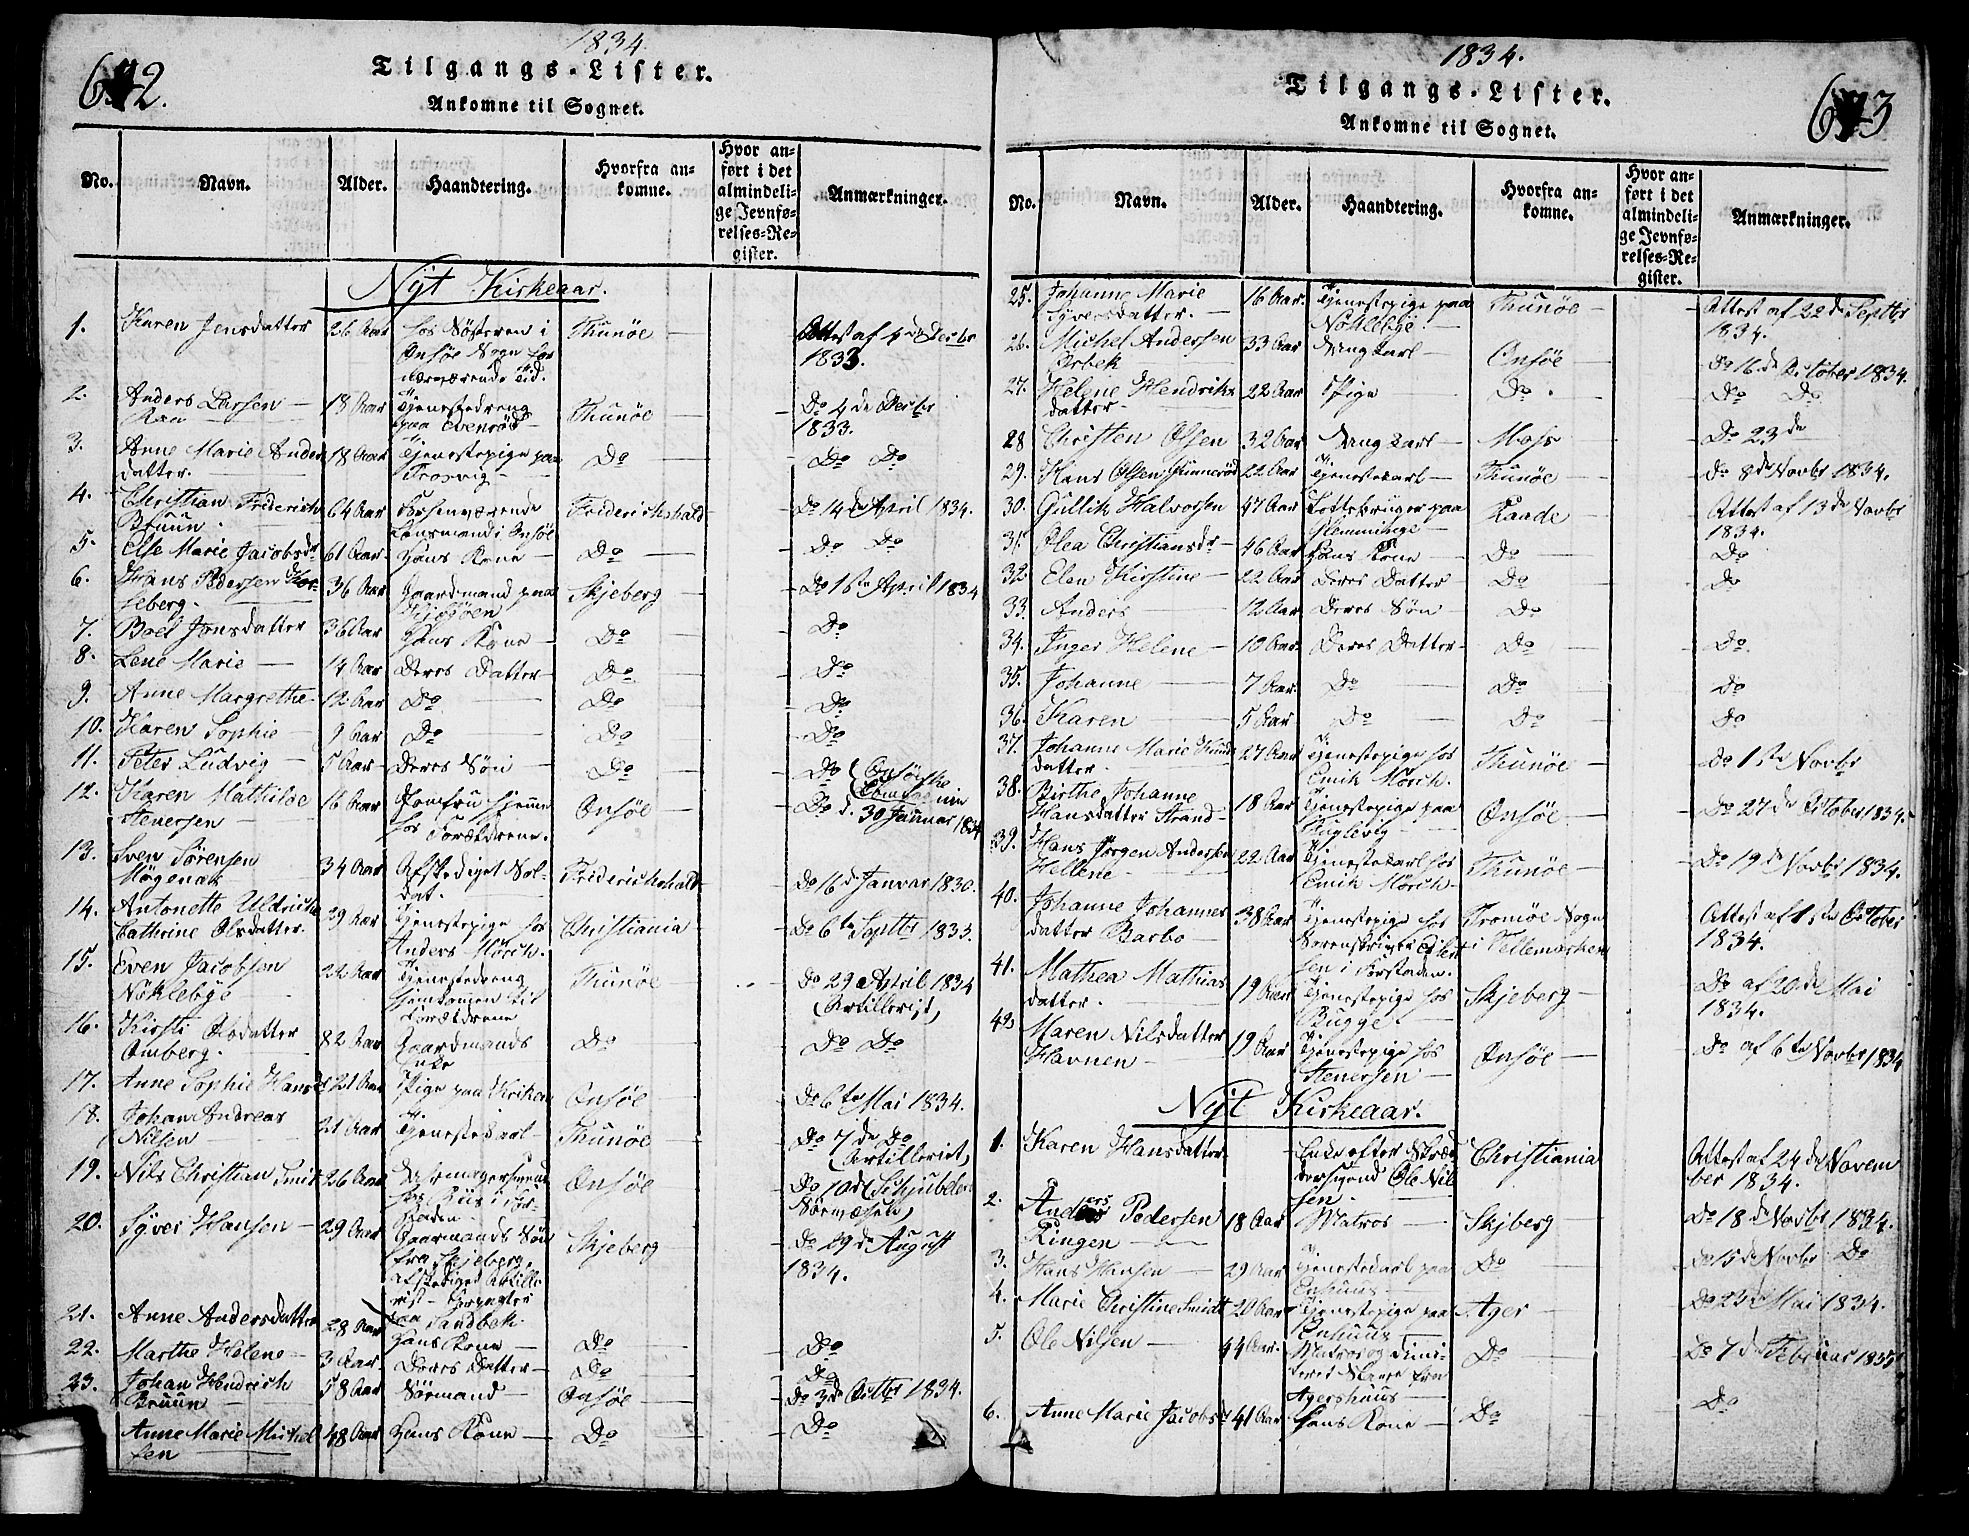 1834.
642.
Tilgangs-Lister.
Ankomne til Sognet.
No. Navn. Alder. Haandtering. Hvorfra ankomne. Hvor anført i det almindelige Jevnførelses-Register. Anmærkninger.
Nyt Kirkeaar.
1. Karen Jensdatter 26 Aar hos Søsteren i Thunöe Attest af 4de Decbr
Onsöe Sogn for 1833.
nærværende Tid.
2. Anders Larsen 18 Aar Tjenestedreng Thunöe Do 4de Decbr
paa Evenröd 1833.
3. Anne Marie Anders 18 Aar Tjenestepige paa Do Do Do
datter. Trosvig
4. Christian Friderich 64 Aar Forhenværende Friderichshald Do 14de April 1834.
Bruun. Lensmand i Onsöe
5. Else Marie Jacobsdr 61 Aar Hans Kone Do Do Do
6. Hans Pedersen 36 Aar Gaardmand paa Skjeberg Do 16de April 1834
seberg. Kjölöen
7. Boel Jonsdatter 36 Aar Hans Kone Do Do
8. Lene Marie 14 Aar Deres Datter Do Do
9. Anne Margrethe 12 Aar Do Do Do
10. Karen Sophie 9 Aar Do Do Do
11. Peter Ludvig 5 Aar Deres Sön Do Do (Onsöiske
12. Karen Mathilde 16 Aar Jomfru hjemme Onsöe Do d. 30 Januar 1834
Stenersen hos Forældrene.
13. Sven Sörensen 34 Aar Afskediget Sol- Friderichshald Do 16de Januar 1830.
Mögenak dat.
14. Antonette Uldricke 29 Aar Tjenestepige hos Christiania Do 6te Septbr 1833.
Cathrine Olsdatter. Anders Mörch.
15. Even Jacobsen 22 Aar Tjenestedreng Thunöe Do 29 April 1834
Nöklebye hjemkommen til (Artillerist)
Forældrene
16. Kirsti Olsdatter 82 Aar Gaardmands Do Do Do
Omberg. Enke
17. Anne Sophie Hansd 21 Aar Pige paa Kirken Onsöe Do 6te Mai 1834.
18. Johan Andreas 21 Aar Tjenestekarl Thunöe Do 7de Do
Nilsen (Artillerist)
19. Nils Christian Smit 26 Aar Onsöe Do 10de (Schjubeler
hos Riis i For- Nörnæsets)
staden.
20. Syver Hansen 29 Aar Gaarmands Sön Skjeberg Do 29de August
fra Skjeberg, 1834.
afskediget Artille-
rist - Forpagter
paa Sandbek.
21. Anne Andersdatter 28 Aar Hans Kone Do Do
22. Marthe Helene 3 Aar. Deres Datter Do Do
23. Johan Hendrich 58 Aar Sörmand Onsöe Do 3de Octbr 1834.
Bruun
Anne Marie Michel 48 Aar Hans Kone Do Do
sen
1834.
643
Tilgangs-Lister.
Ankomne til Sognet.
No. Navn. Alder. Haandtering. Hvorfra ankomne. Hvor anført i det almindelige Jevnførelses-Register. Anmærkninger.
25. Johanne Marie 16 Aar Tjenestepige paa Thunöe Attest af 22de Septbr
Syversdatter. Nöklebye 1834.
26. Michel Andersen 33 Aar Ungkarl Onsöe Do 16de October 1834.
Orbek
27. Helene Hendriks 22 Aar Pige Do Do Do
datter
28 Christen Olsen 32 Aar Ungkarl Moss Do 23de
29. Hans Olsen Gunneröd 22 Aar Tjenestekarl Thunöe Do 8de Novbr 1834.
30. Gullik Halvorsen 47 Aar Lottebruger paa Raade Attest af 13de Novbr
Glemminge 1834.
31. Olea Christiansdr 46 Aar Hans Kone Do Do
32 Elen Kirstine 22 Aar Deres Datter Do Do
33. Anders 12 Aar Deres Sön Do
34. Inger Helene 10 Aar Deres Datter Do Do
35. Johanne 7 Aar Do Do Do
36. Karen 5 Aar Do Do Do
37. Johanne Marie Knuds 27 Aar Tjenestepige hos Thunöe Do 1ste Novbr
datter. Emih Mörch.
38. Birthe Johanne 18 Aar Tjenestepige paa Onsöe Do 27de October 1834.
Hansdatter Strand Kuglevig
39. Hans Jörgen Andersen 22 Aar Tjenestekarl hos Thunöe Do 19de Novbr 1834.
Hellene Emih Mörch
40. Johanne Johannes 38 Aar Tjenestepige hos Tromöe Sogn Attest af 1ste October
datter Barbo Sorenskriver Eilert i Tellemarken 1834.
sen i Forstaden.
41. Mathea Mathias 19 Aar Tjenestepige hos Skjeberg Do af 20de Mai
datter. Bugge 1834.
42 Maren Nilsdatter 19 Aar Tjenestepige hos Onsöe Do af 6te Novbr 1834
Havnen Stenersen
Nyt Kirkeaar.
1. Karen Hansdatter Enke efter Skræd Christiania Attest af 24de Novem
dersvend Ole Nil ber 1834.
sen
2. Anders Pedersen 18 Aar Matros Skjberg Do 18de Novbr 1834.
Ringen
3. Hans Hansen 29 Aar Tjenestekarl paa Do Do 15de Novbr Do
Enhuus
4. Marie Christine Smidt 20 Aar Tjenestepige paa Ager Do 23de Mai 1834.
Enhuus
5. Ole Nilsen 44 Aar. Matros og dimi- Do Do 7de Februar 1835
teret Slave fra
Agershuus
6. Anne Marie Jacobsd 41 Aar Hans Kone Do Do